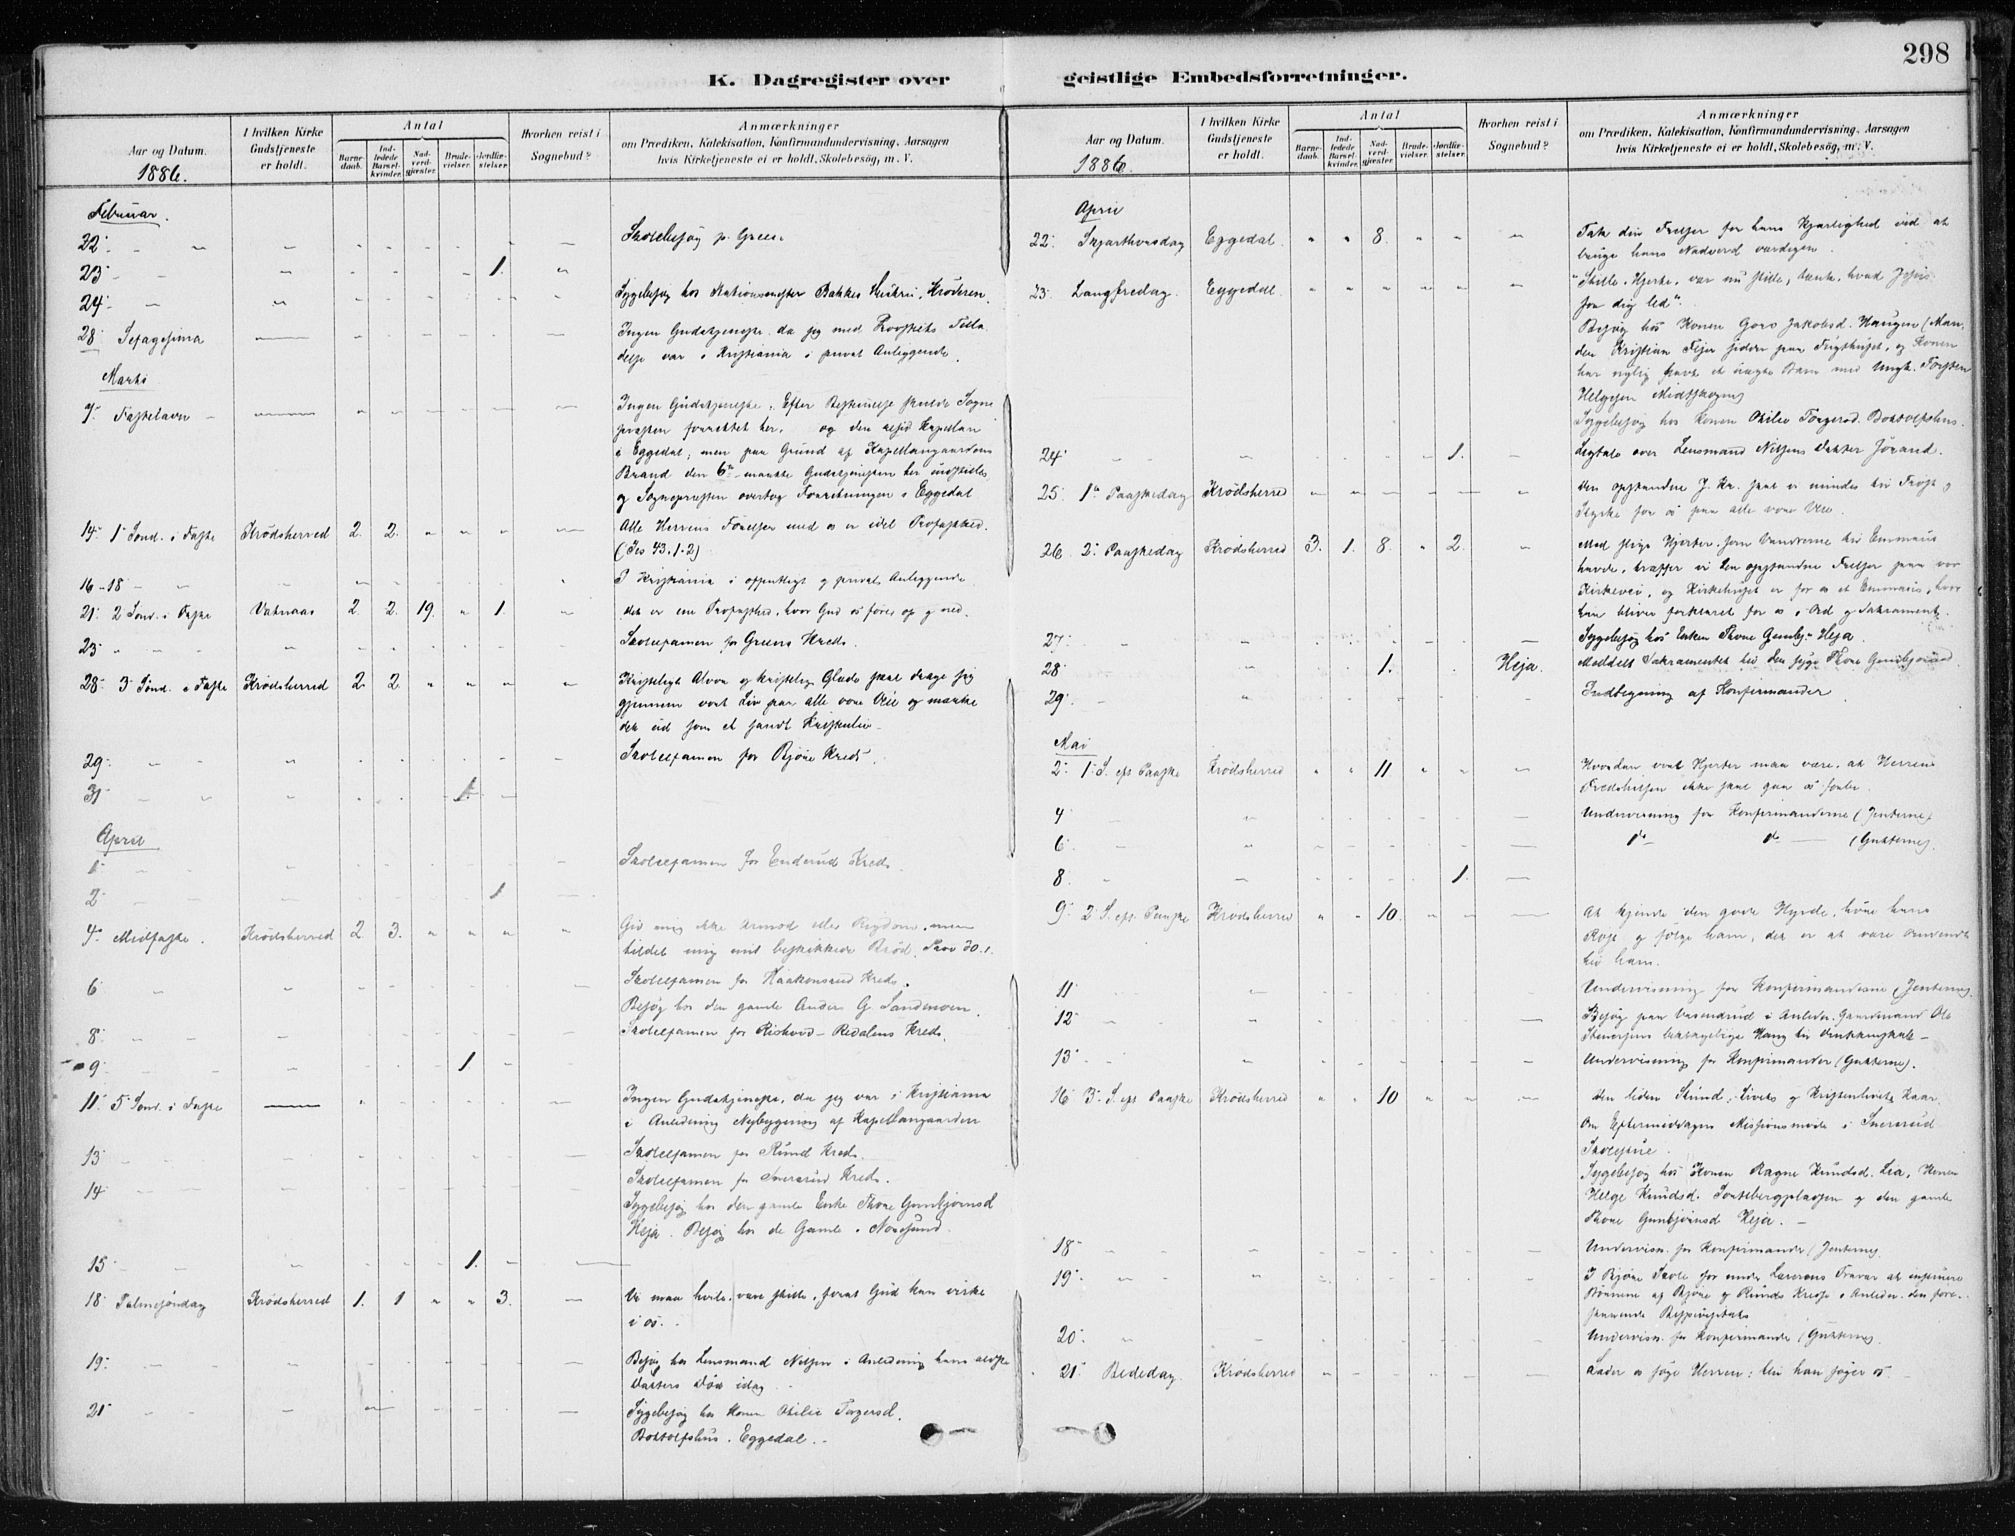 298
K. Dagregister over geistlige Embedsforretninger.
Aar og Datum.
1886.
I hvilken Kirke Gudstjeneste er holdt.
Antal
Barnedaab.
Indledede Barselkvinder.
Nadverdgjester.
Brudevielser.
Jordfæstelser.
Hvorhen reist i Sognebud?
Anmærkninger
om Prædiken, Katekisation, Konfirmandundervisning, Aarsagen
hvis Kirketjeneste ei er holdt, Skolebesøg, m. V.
Februar.
22
23 1.
24
Sygebesøg hos Stationsmester Bakkes Krøderen.
28 Sexagesima
Ingen Gudstjeneste, da jeg med Provstets Tilla
delse var i Kristiania i privat Anliggende.
Marts
7 Fastelavn
Ingen Gudstjeneste. Efter Bestemmelse skulde Sogne
presten forrettet her, og den resid Kapellan
i Eggedal; men paa Grund af Kapellangaardens
Brand den 6te maatte Gudstjenesten her indstilles
og Sognepresten overtog Forretningen i Eggedal
14 1 Sønd. i Faste Krødsherred 2. 2.
(Jes 43.1.2)
16-18
I Kristiania i offentligt og privat Anliggende
21 2 Sønd. i Faste 2. 2. 19. 1.
det er en hvor Gud os fører op og ned.
23
Skolexamen for Greens Kreds.
28 3 Sønd. i Faste Krødsherred 2. 2.
Kristeligt Alvor og kristelig Glæde skal drage sig
gjennem vort Liv paa alle vore Veie og mærke
det ud som et sandt Kristenliv
29
Skolexamen for Bjøre Kreds.
31 1.
April
1
Skolexamen for Enderud Kreds.
2 1
4 Midfaste. Krødsherred 2. 3.
Giv mig ikke Armod eller Rigdom, men
tildel mig mit beskikkede Brød. 30.
6
Skolexamen for Haakonsrud Kreds.
Besøg hos den gamle Anders G. Sandmoen.
8
Skolexamen for Redalens Kreds.
9 1
11 5 Sønd. i Faste
Ingen Gudstjeneste, da jeg var i Kristiania
i Anledning Nybygning af Kapellangaarden
13
Skolexamen for Rund Kreds.
14
Skolexamen for Snersrud Kreds.
Sygebesøg hos den gamle Enke Thone Gunbjørnsd
Heja. Besøg hos de Gamle i Noresund.
15 1.
18 Palmesøndag Krødsherred 1. 1 3.
Vi maa hvile, være stille, forat Gud kan virke
i os.
19
Besøg hos Lensmand Nilsen i Anledning hans ældste
Datters Død idag.
21
Sygebesøg hos Konen Othilie Torgersd.
Bottolfshus. Eggedal.
Aar og Datum.
1886.
I hvilken Kirke Gudstjeneste er holdt.
Antal
Barnedaab.
Indledede Barselkvinder.
Nadverdgjester.
Brudevielser.
Jordfæstelser.
Hvorhen reist i Sognebud?
Anmærkninger
om Prædiken, Katekisation, Konfirmandundervisning, Aarsagen
hvis Kirketjeneste ei er holdt, Skolebesøg, m. V.
April
22 Skjærthorsdag Eggedal. 8.
Tak din Frelser for hans Kjærlighed ved at
bruge hans Nadverd værdigen.
23 Langfredag. Eggedal
"Stille, Hjerte, vær nu stille, tænk, hvad Jesus
for dig led".
Besøg hos Konen Goro Jakobsd. Haugen (Man
den Kristian sidder paa og Konen
har nylig havt et uægte Barn med Ungk. Torsten
Helgesen Midtskogen)
Sygebesøg hos Konen Othilie Torgersd. Bottolfshus.
24 1.
Ligtale over Lensmand Nilsens Datter Jørand.
25 1 Paaskedag Krødsherred
den opstandne J. Kr. skal vi mindes til Trøst og
Styrke for os paa alle vore Veie.
26 2 Paaskedag Krødsherred 3. 1. 8. 2.
Med slige Hjerter, som Vandrerne til Emmaus
havde, træffer vi den opstandne Frelser paa vor
Kirkevei, og Kirkehuset er for os et Emmaus, hvor
han bliver forklaret for os i Ord og Sakrament.
27
Sygebesøg hos Enken Thone Gunbj. Heja.
28 1. Heja.
Meddelt Sakramentet til den syge Thone Gunbjørnsd
29
Indtegning af Konfirmander.
Mai
2 1 S. eft Paaske Krødsherred 11
Hvordan vort Hjerte maa være, at Herrens
Fredshilsen ikke skal gaa os forbi.
4
Undervisning for Konfirmanderne (Jenterne)
6
do do (Gutterne)
8 1.
9 2 S. eft. Paaske Krødsherred 10.
At kjende den gode Hyrde, høre hans
Røst og følge ham, det er at være omvendt
til ham.
11
Undervisning for Konfirmanderne (Jenterne).
12
Besøg paa i Anledn. Gaardmand Ole
13
Undervisning for Konfirmander (Gutterne).
16 3 S. eft Paaske Krødsherred 10
Den liden Stund: Livets og Kristenlivets Kaar.
Om Eftermiddagen Missionsmøde i Snersrud
Skolestue.
Sygebesøg hos Konen Ragne Knudsd. Lia, Konen
Helge Knudsd. og den gamle
Thone Gunbjørnsd Heja.
18
Undervisn. for Konfirmander (Jenterne)
19
I Bjøre Skole for under Lærerens Fravær at
Børnene af Bjøre og Runds Kredse i Anledn. den fore-
staaende Bispevisitats
20
Undervisn. for Konfirmander (Gutterne)
21 Bededag. Krødsherred
Lader os søge Herren; thi han søger os